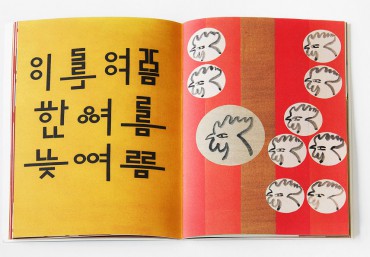 이른여름
한여름
늦여름